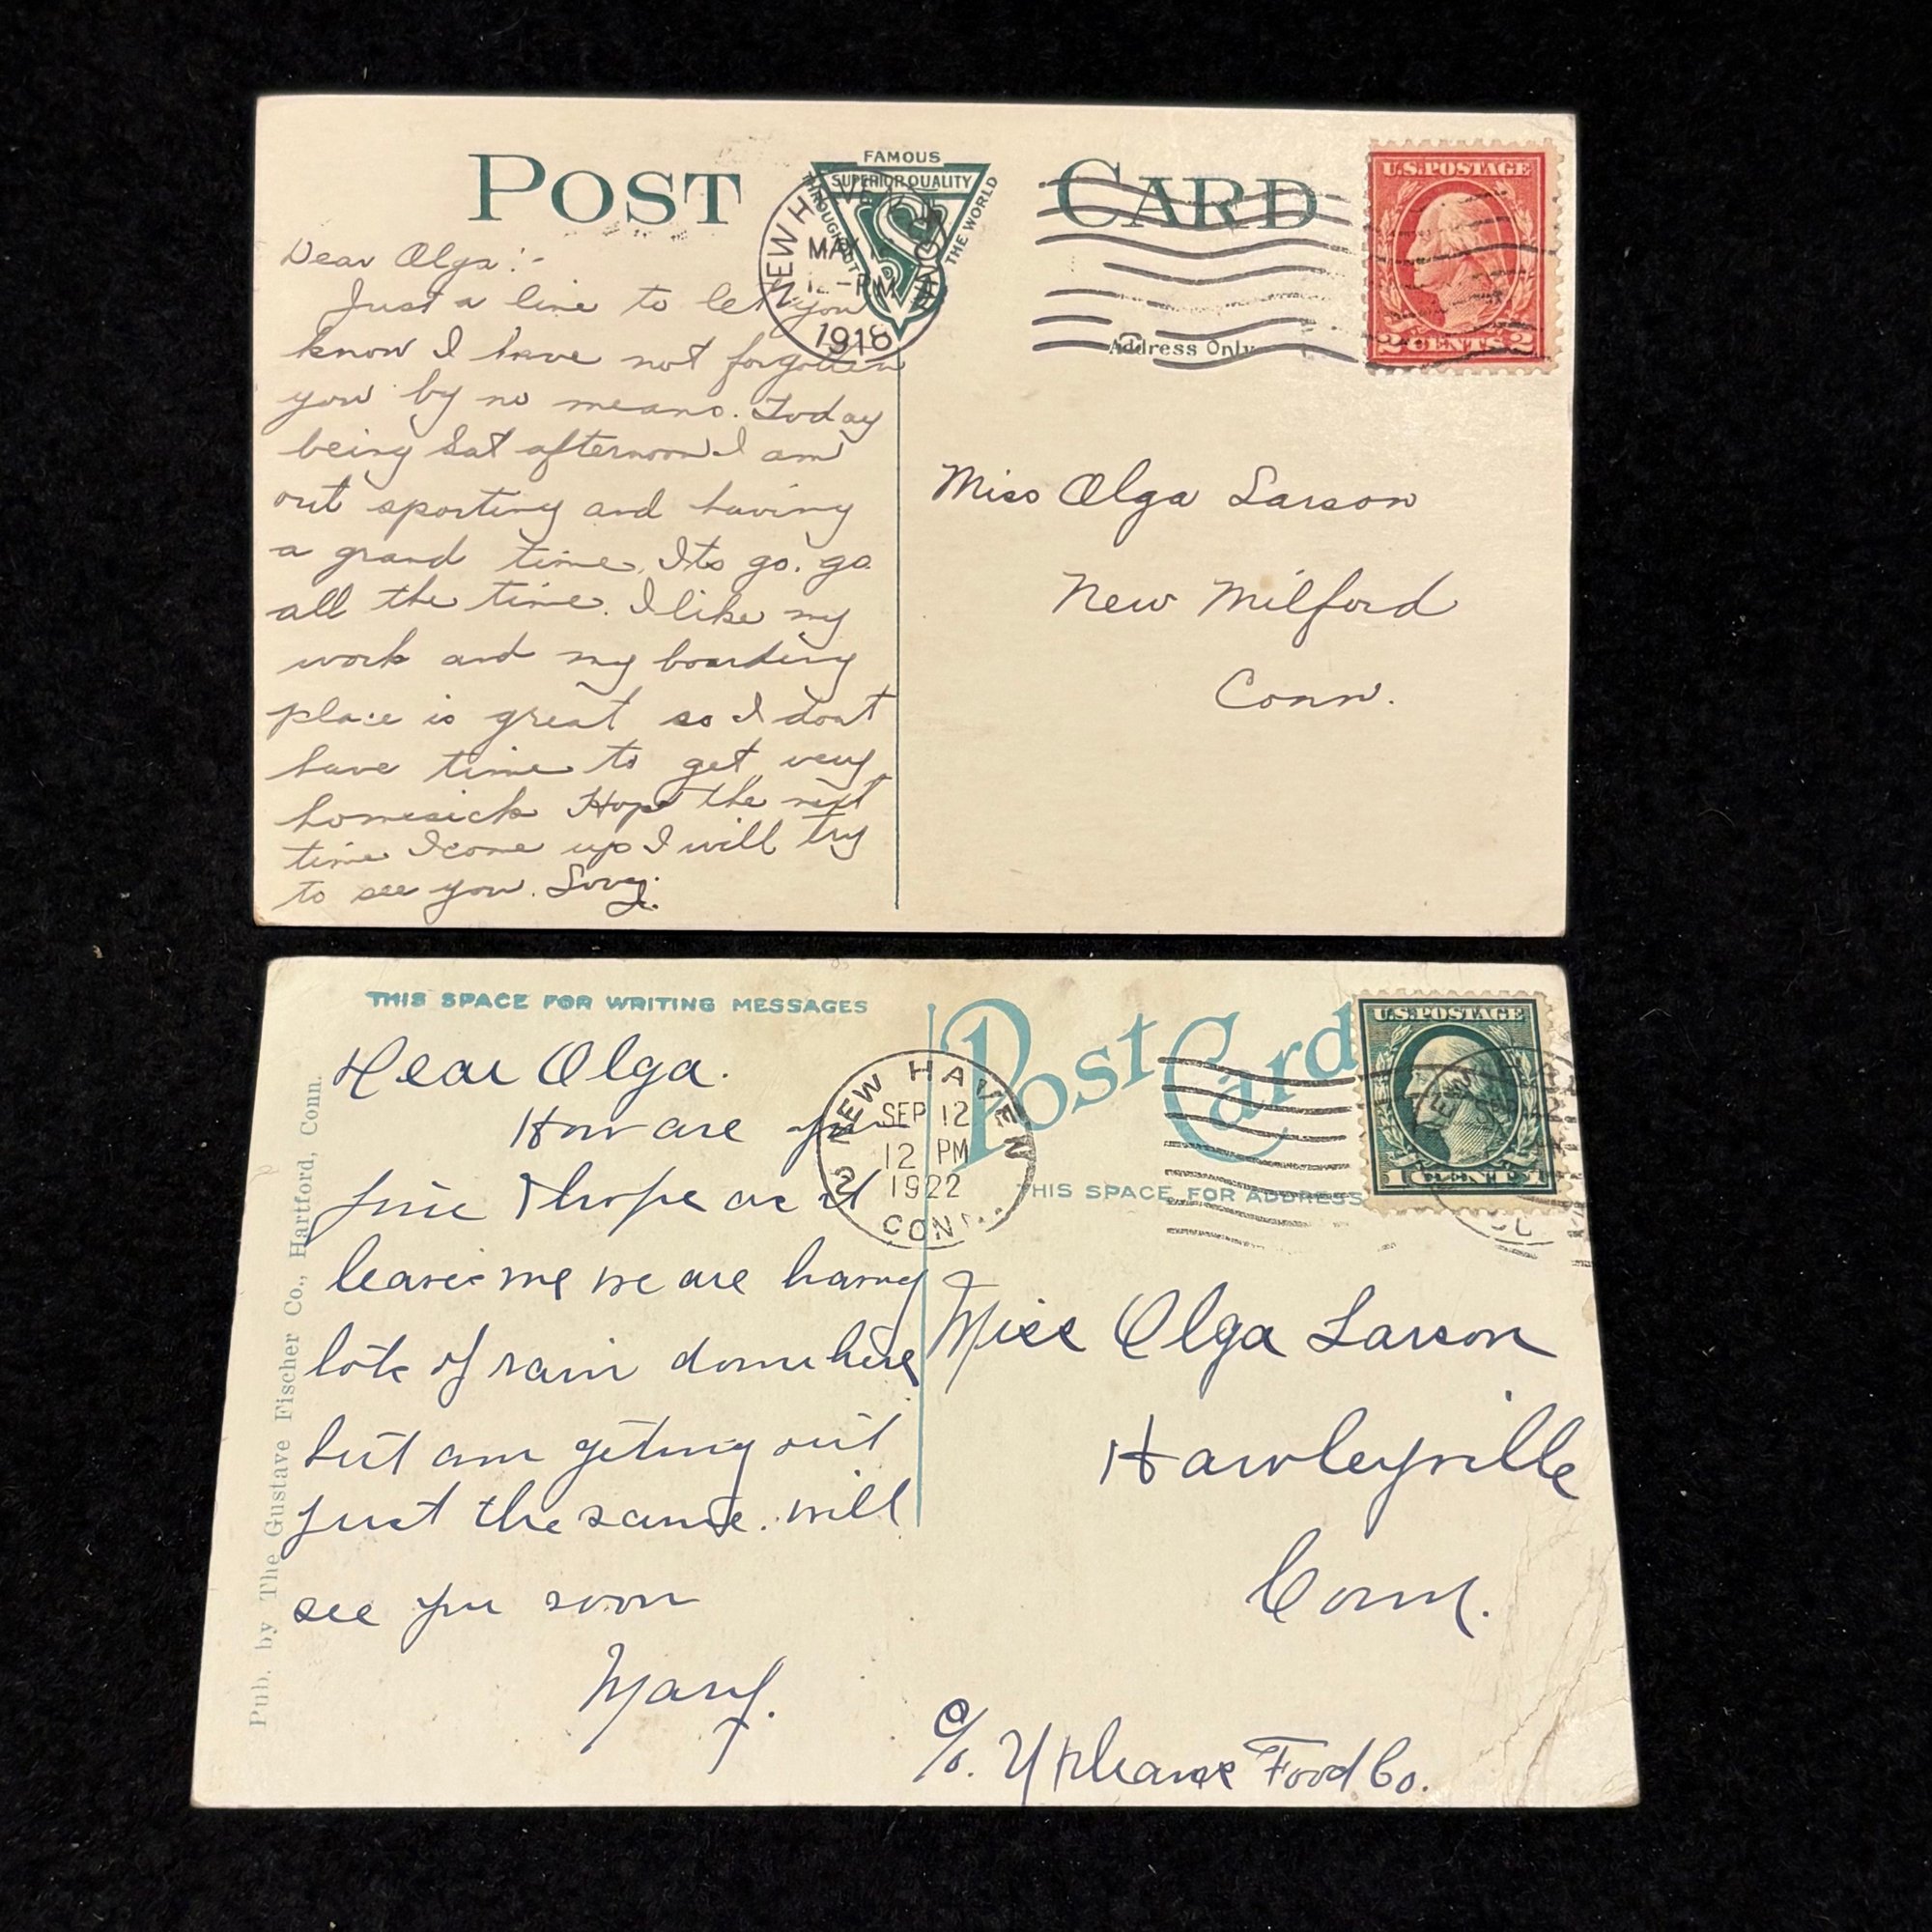 POST CARD
FAMOUS
SUPERIOR QUALITY
THROUGHOUT
THE WORLD
NEW HAVEN
MAY
12-PM
1918
U.S. POSTAGE
2 CENTS 2
Address Only
Dear Olga:-
Just a line to let you
know I have not forgotten
you by no means. Today
being Sat afternoon I am
out sporting and having
a grand time. Its go. go.
all the time. I like my
work and my boarding
place is great so I dont
have time to get very
homesick Hope the next
time I come up I will try
to see you.
Miss Olga Larson
New Milford
Conn.
THIS SPACE FOR WRITING MESSAGES
Post Card
THIS SPACE FOR ADDRESS
U.S. POSTAGE
1 CENT 1
NEW HAVEN
SEP 12
12 PM
1922
2
CONN.
Pub. by The Gustave Fischer Co., Hartford, Conn.
Dear Olga.
How are you
fine I hope as it
leaves me we are having
lots of rain down here
but am geting out
just the same. will
see you soon
Mary.
Miss Olga Larson
Hawleyville
Conn.
c/o. Food Co.